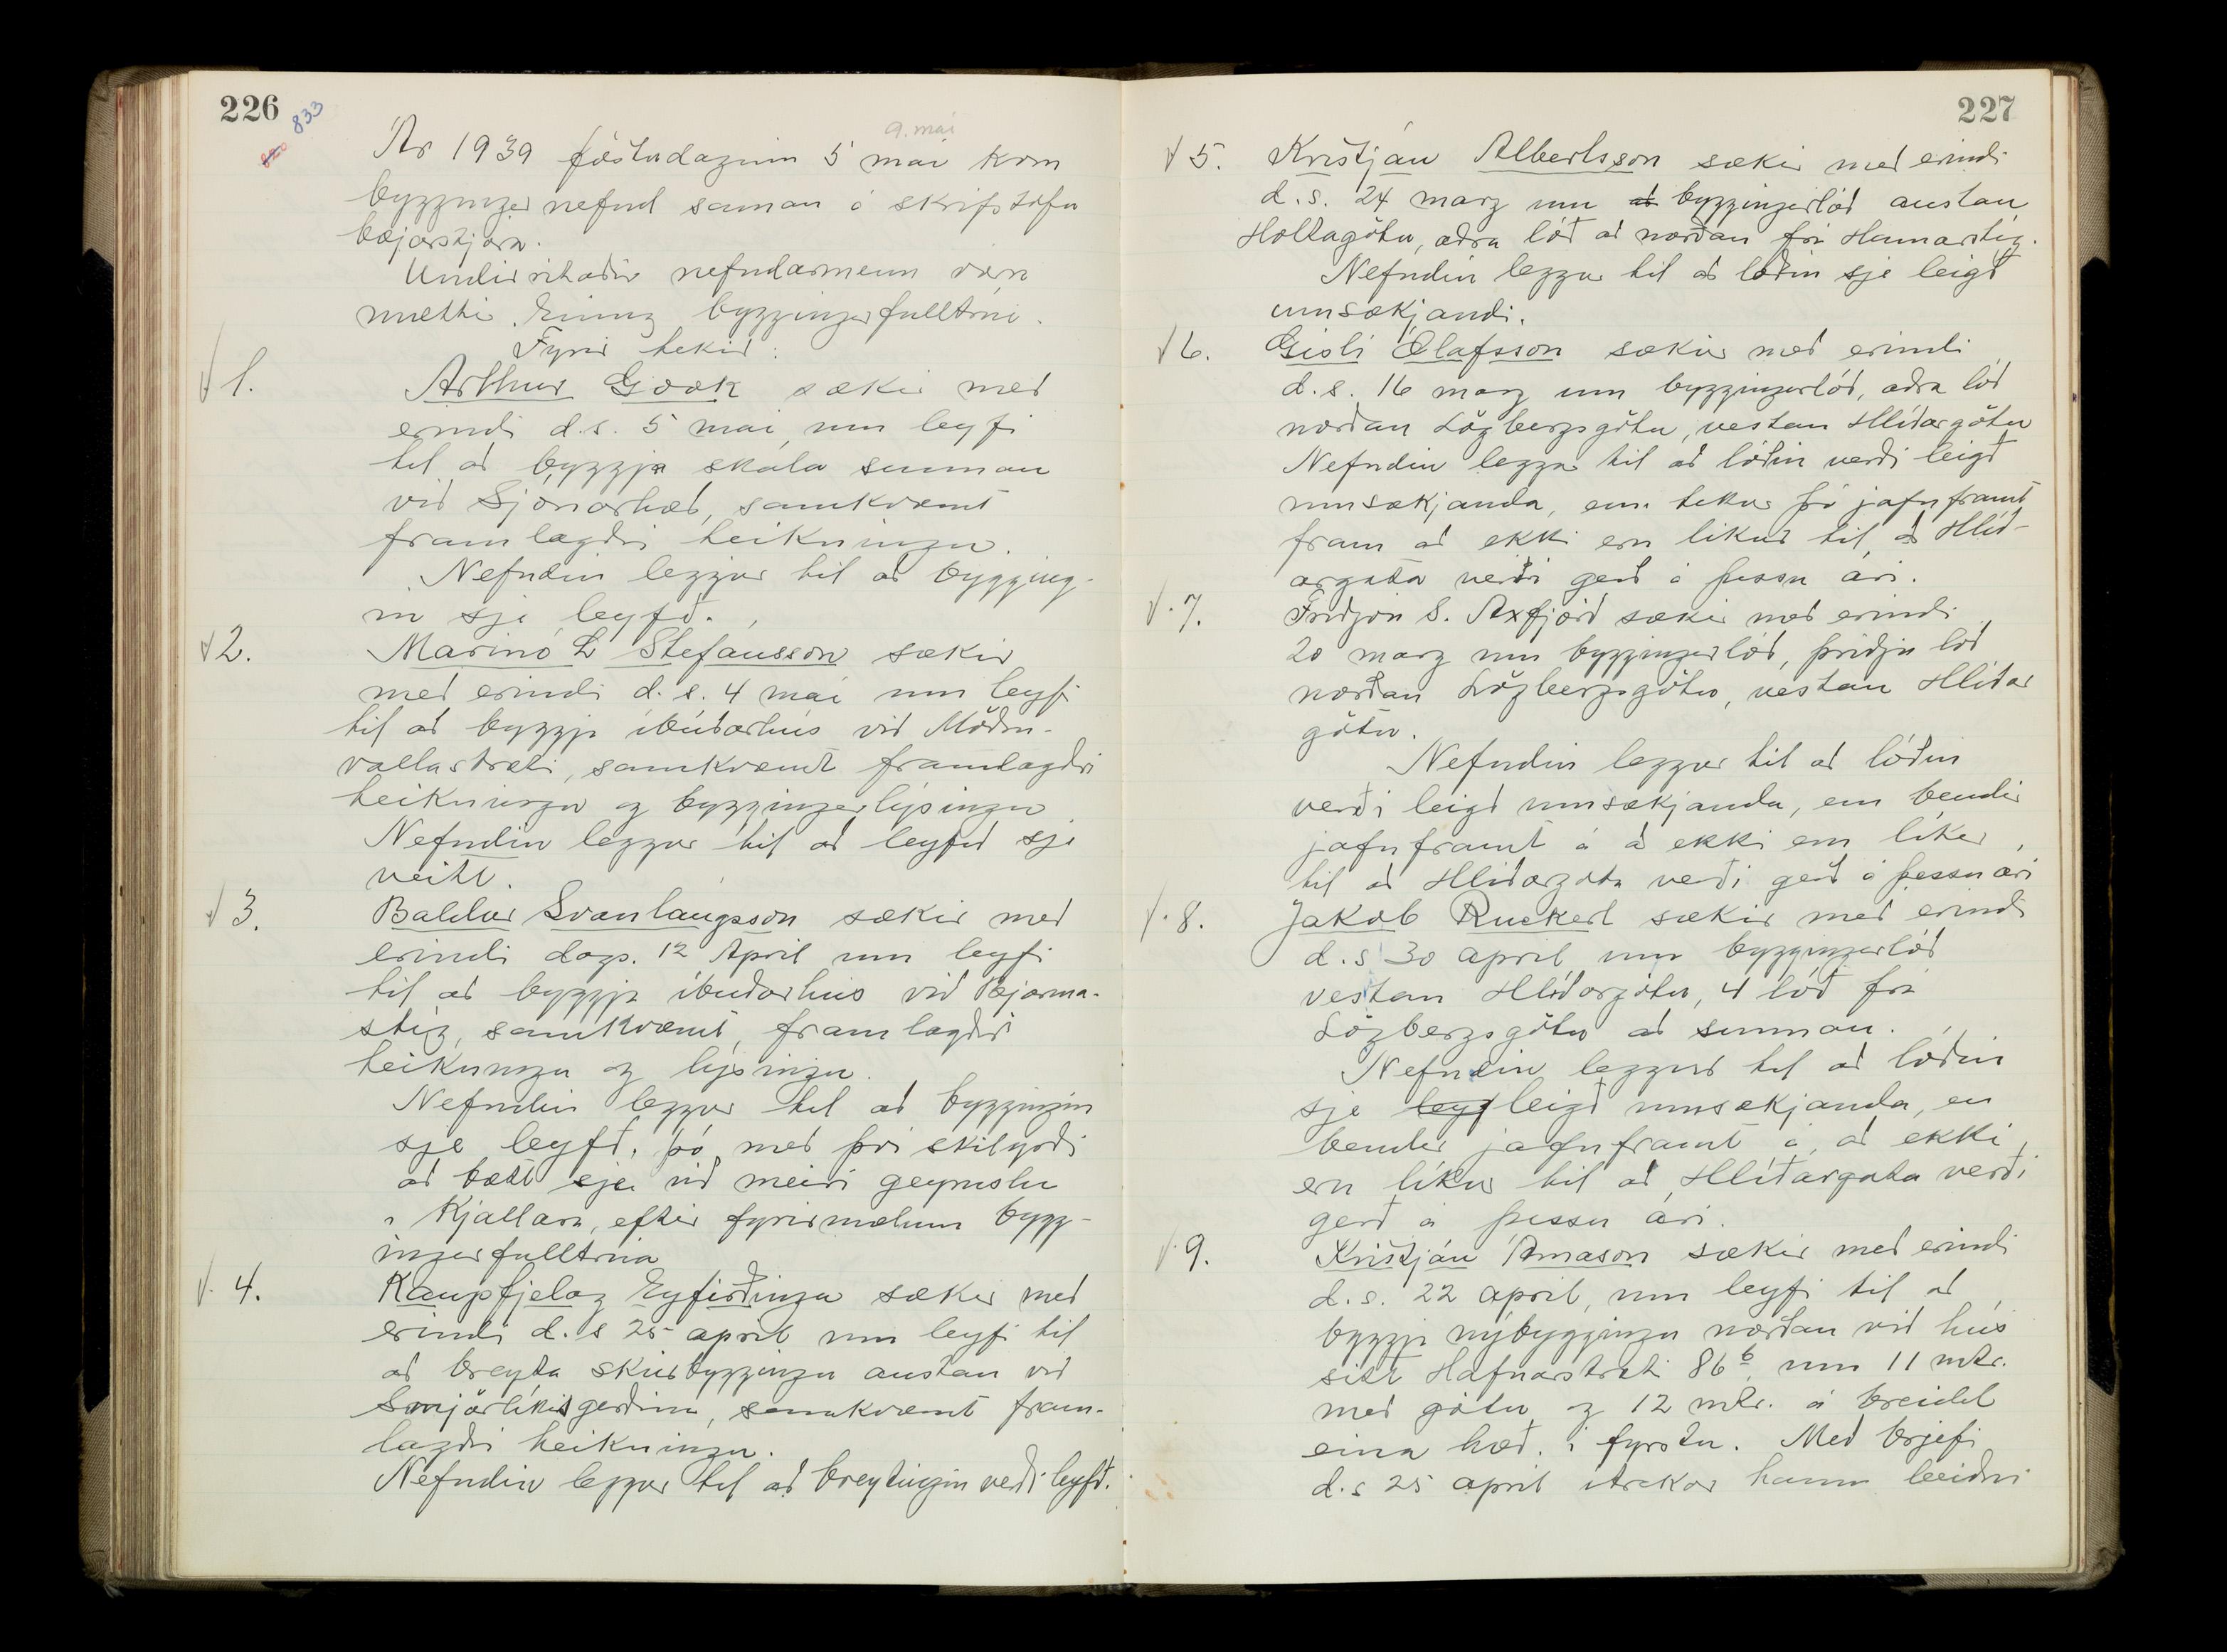 226
833
9. mai
Ár 1939 föstudaginn 5 mai kom
bygginganefnd saman á skrifstofu
bæjarstjóra.
Undirritaðir nefndarmenn voru
mættir. Einnig byggingarfulltrúi.
Fyrir tekið:
1. Arthur Gook sækir með
erindi d.s. 5 mai, um leyfi
til að byggja skála sunnan
við Sjónarhæð, samkvæmt
framlagðri teikningu.
Nefndin leggur til að bygging-
in sje leyfð.
2. Marinó L Stefánsson sækir
með erindi d.s. 4 mai um leyfi
til að byggja íbúðarhús við Möðru-
vallastræti, samkvæmt framlagðri
teikningu og byggingarlýsingu
Nefndin leggur til að leyfið sje
veitt.
3. Baldur Svanlaugsson sækir með
erindi dags. 12 April um leyfi
til að byggja íbúðarhús við Bjarma-
stíg, samkvæmt, framlagðri
teikningu og lýsingu.
Nefndin leggur til að byggingin
sje leyfð, þó með því skilyrði
að bætt sje við meiri geymslu
í Kjallara, eftir fyrirmælum bygg-
ingarfulltrúa
4. Kaupfjelag Eyfirðinga sækir með
erindi d.s 25 april um leyfi til
að breyta skúrbyggingu austan við
Smjörlíkisgerðina, samkvæmt fram-
lagðri teikningu.
Nefndin leggur til að breytingin verði leyfð.
227
5. Kristján Albertsson sækir með erindi
d.s. 24 marz um að byggingarlóð austan
Holtagötu, aðra lóð að norðan frá Hamarstíg.
Nefndin leggur til að lóðin sje leigð
umsækjandi.
6. Gísli Ólafsson sækir með erindi
d.s. 16 marz um byggingarlóð, aðra lóð
norðan Lögbergsgötu, vestan Hlíðargötu
Nefndin leggur til að lóðin verði leigð
umsækjanda, en tekur þó jafnframt
fram að ekki eru líkur til að Hlíð-
argata verði gerð á þessu ári.
7. Friðjón S. Axfjörð sækir með erindi
20 marz um byggingarlóð, þriðju lóð
norðan Lögbergsgötu, vestan Hlíðar
götu.
Nefndin leggur til að lóðin
verði leigð umsækjanda, en bendir
jafnframt á að ekki eru líkur
til að Hlíðargata verði gerð á þessu ári
8. Jakob Ruckert sækir með erindi
d.s 30 april um byggingarlóð
vestan Hlíðargötu, 4 lóð frá
Lögbergsgötu að sunnan.
Nefndin leggur til að lóðin
sje leyf leigð umsækjanda, en
bendir jafnframt á, að ekki
eru líkur til að Hlíðargata verði
gerð á þessu ári.
9. Kristján Árnason sækir með erindi
d.s. 22 april, um leyfi til að
byggja nýbyggingu norðan við hús
sitt Hafnarstræti 86 b, um 11 mtr.
með götu og 12 mtr. á breidd
eina hæð. í fyrstu. Með brjefi
d.s 25 april ítrekar hann beiðni